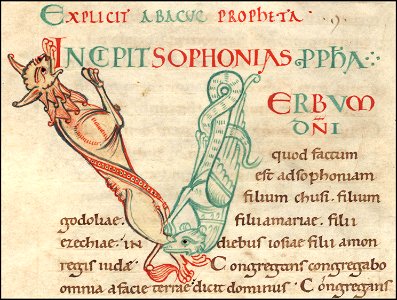 EXPLICIT ABACUC PROPHETA
INCIPIT SOPHONIAS. PPHA
ERBUM
DÑI
quod factum
est ad sophoniam
filium chusi. filium
godoliae. filii amariae. filii
ezechiae. IN diebus iosiae filii amon
regis iudae. Congregans congregabo
omnia a facie terrae dicit dominus. Congregans